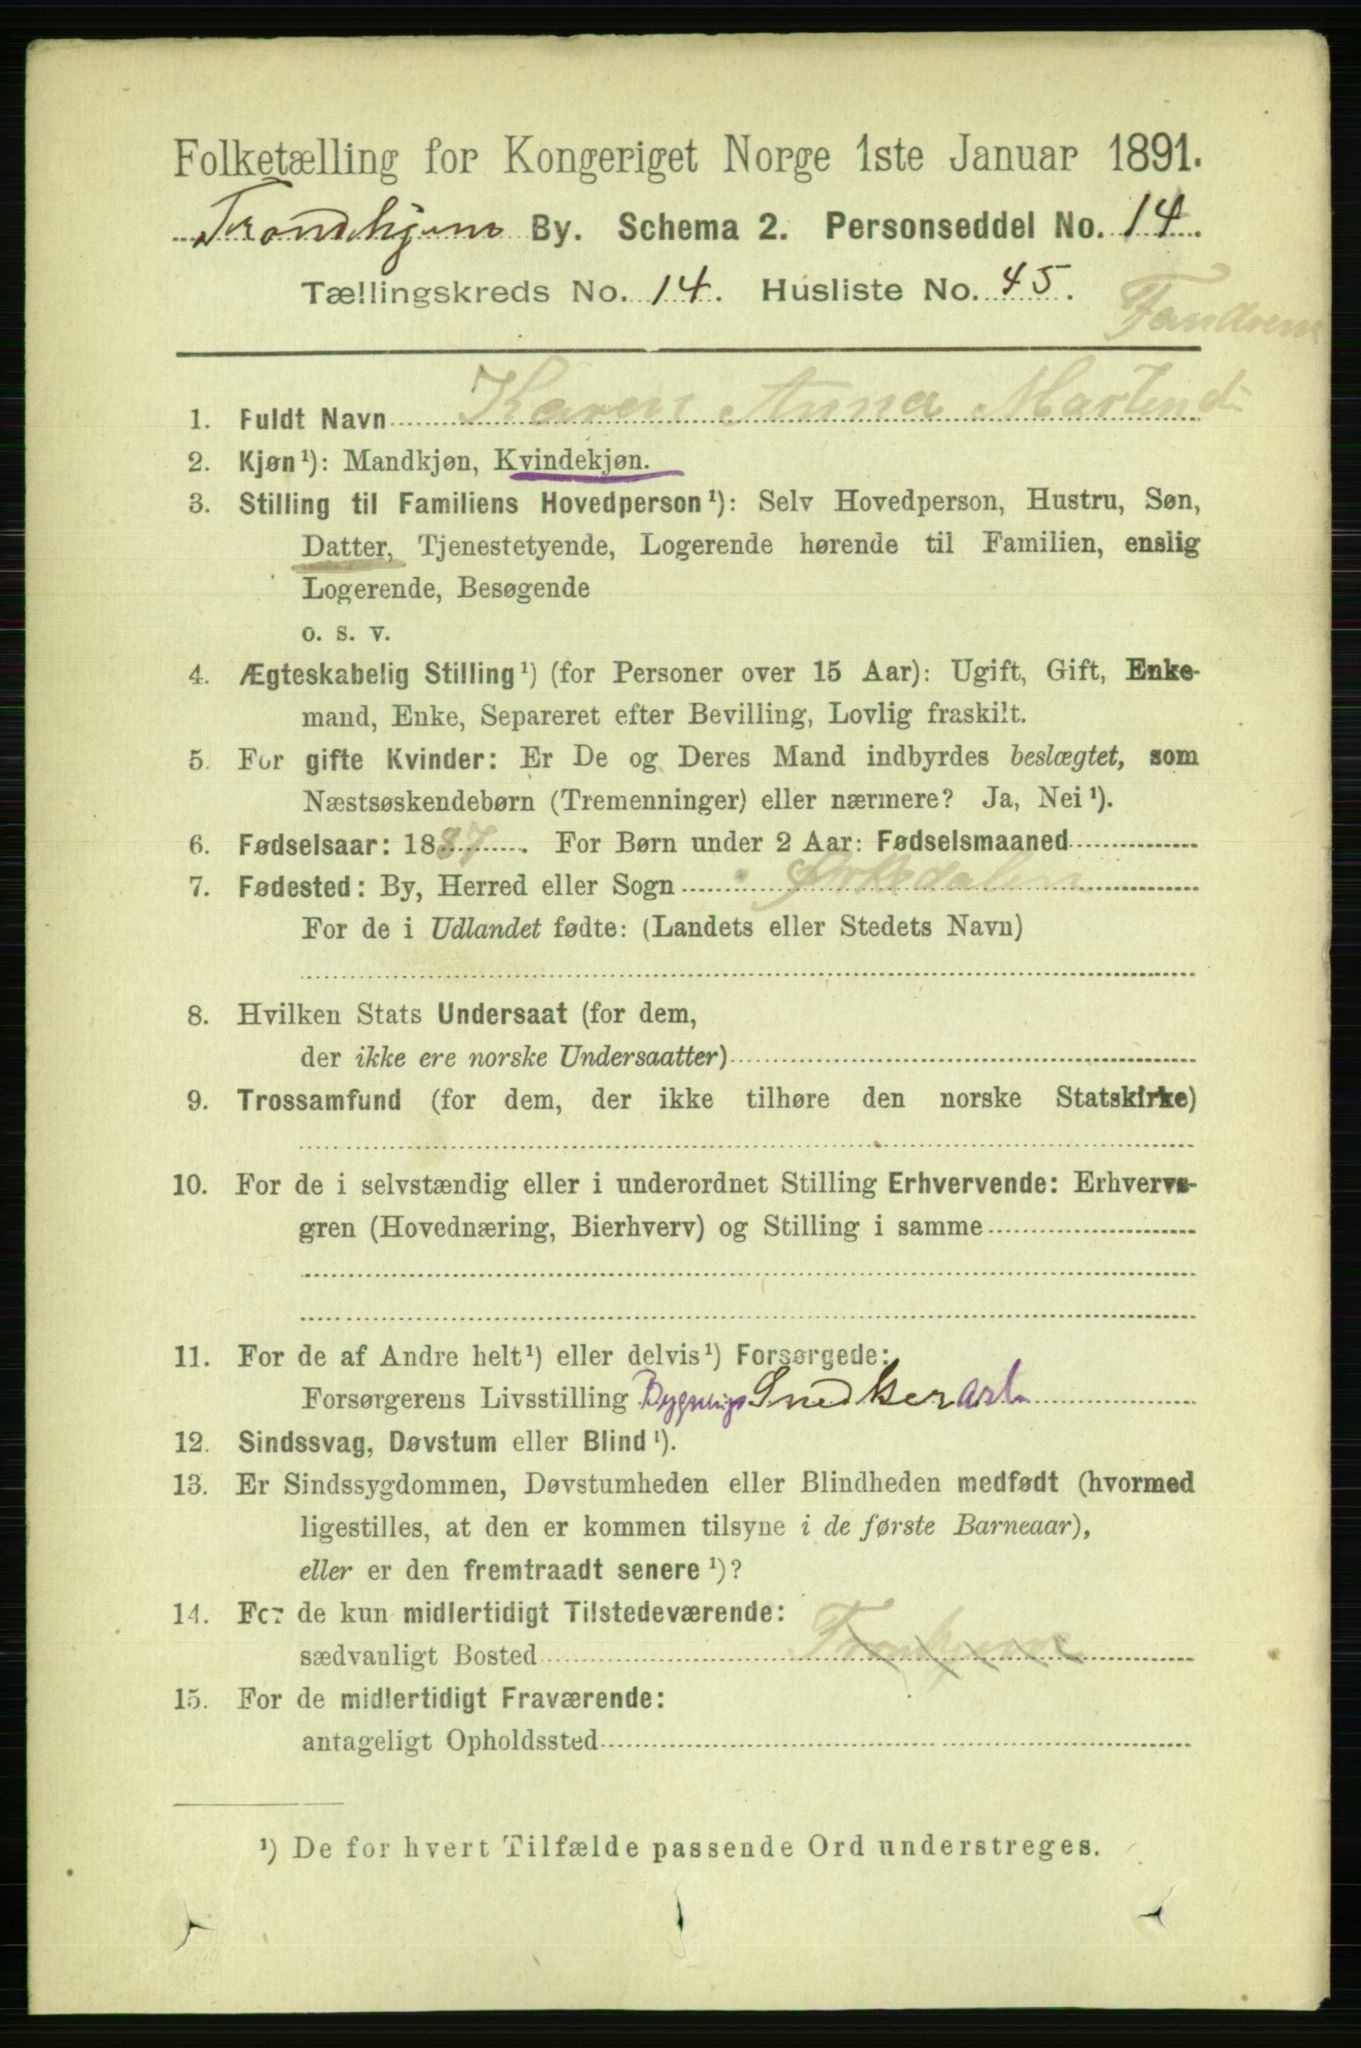 Folketælling for Kongeriget Norge 1ste Januar 1891.
Trondhjem By. Schema 2. Personseddel No. 14.
Tællingskreds No. 14. Husliste No. 45.
1. Fuldt Navn Karen Anna
2. Kjøn¹): Mandkjøn, Kvindekjøn.
3. Stilling til Familiens Hovedperson¹): Selv Hovedperson, Hustru, Søn,
Datter, Tjenestetyende, Logerende hørende til Familien, enslig
Logerende, Besøgende
o. s. v.
4. Ægteskabelig Stilling¹) (for Personer over 15 Aar): Ugift, Gift, Enke-
mand, Enke, Separeret efter Bevilling, Lovlig fraskilt.
5. For gifte Kvinder: Er De og Deres Mand indbyrdes beslægtet, som
Næstsøskendebørn (Tremenninger) eller nærmere? Ja, Nei¹).
6. Fødselsaar: 1887. For Børn under 2 Aar: Fødselsmaaned
7. Fødested: By, Herred eller Sogn Orkedalen
For de i Udlandet fødte: (Landets eller Stedets Navn)
8. Hvilken Stats Undersaat (for dem,
der ikke ere norske Undersaatter)
9. Trossamfund (for dem, der ikke tilhøre den norske Statskirke)
10. For de i selvstændig eller i underordnet Stilling Erhvervende: Erhvervs-
gren (Hovednæring, Bierhverv) og Stilling i samme
11. For de af Andre helt¹) eller delvis¹) Forsørgede:
Forsørgerens Livsstilling Bygnings Snedker arb
12. Sindssvag, Døvstum eller Blind¹).
13. Er Sindssygdommen, Døvstumheden eller Blindheden medfødt (hvormed
ligestilles, at den er kommen tilsyne i de første Barneaar),
eller er den fremtraadt senere¹)?
14. For de kun midlertidigt Tilstedeværende:
sædvanligt Bosted
15. For de midlertidigt Fraværende:
antageligt Opholdssted
¹) De for hvert Tilfælde passende Ord understreges.